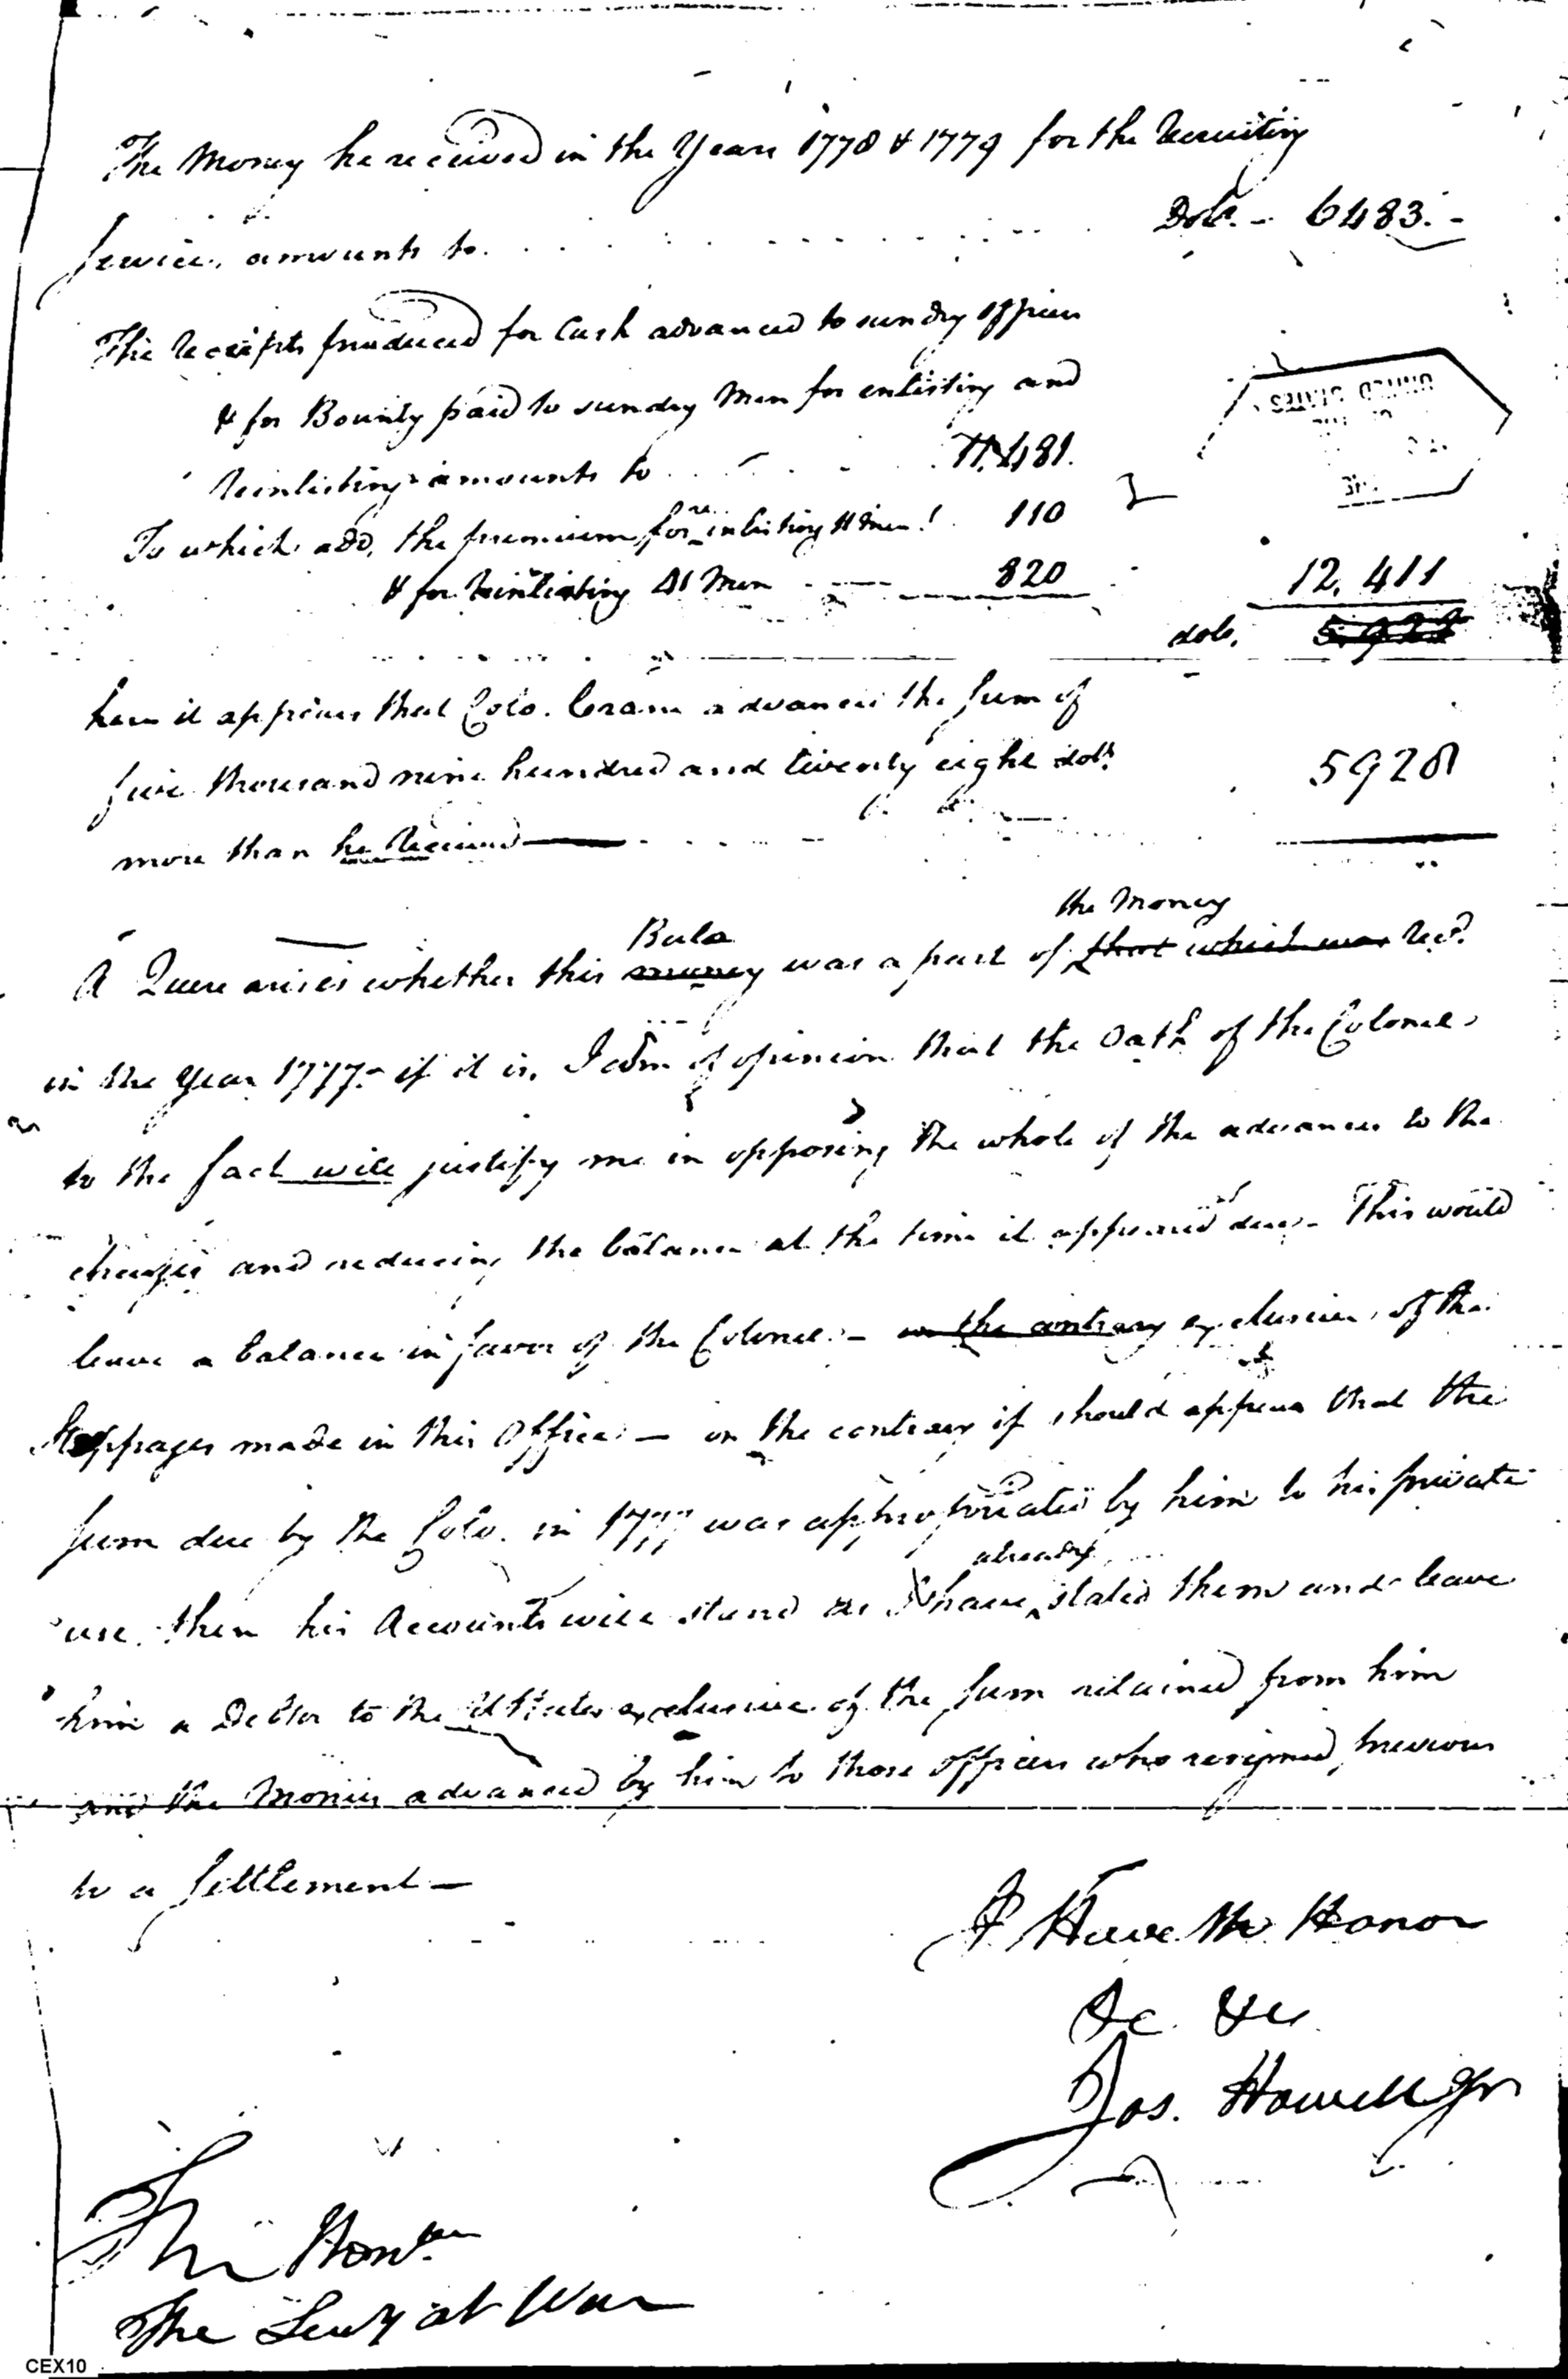 The Money he received in the Years 1778 & 1779 for the Recruiting
Service, amounts to . . . . . . . . . . Dolrs. - 6483. -
The Receipts produced for Cash advanced to sundry officers
& for Bounty paid to sundry Men for enlisting and
Reinlisting amounts to . . . . 11.481.
To which add, the premium for re-inlisting 11 Men . 110
& for Reinlisting 41 Men . . . 820 12.411
dols. 5.928
here it appears that Colo. Crane advances the Sum of
five thousand nine hundred and twenty eight dolrs. 5928
more than he Received
the Money
Bala
A Quere arises whether this money was a part of that which was Recd.
in the Year 1777 - if it is, I am of opinion that the Oath of the Colonel
to the fact will justify me in opposing the whole of the advances to the
charges and reducing the balance at the time it appeared due - This would
leave a balance in favor of the Colonel - on the contrary exclusive of the
Stoppages made in this Office - on the contrary if should appear that the
it
Sum due by the Colo. in 1777 was appropriated by him to his private
already
use, then his Accounts will stand as I have stated them and leave
him a Debtor to the U States exclusive of the Sum retained from him
and the Monies advanced by him to those officers who resigned previous
to a Settlement —
I Have the Honor
&c &c
Jos. Howell Jr
The Honble
The Secy at War
UNITED STATES
CEX10